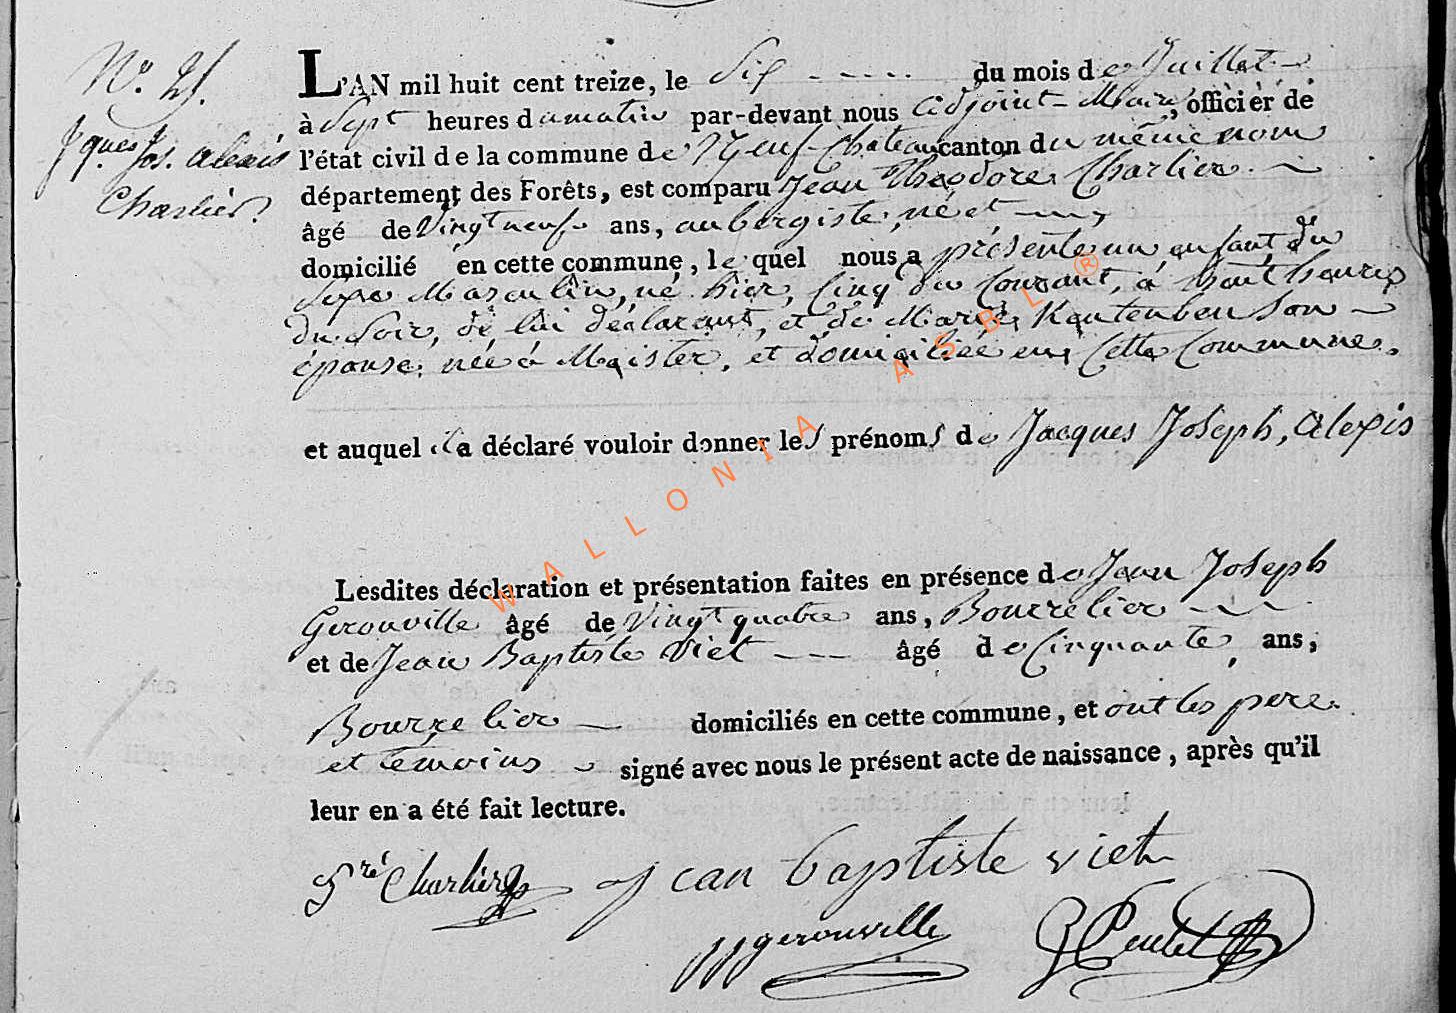 N.o 25.
Jques Jos. Alexis
Charlier
L'AN mil huit cent treize, le Six du mois de Juillet
à Sept heures du matin par-devant nous adjoint-Maire, officier de
l'état civil de la commune de Neuf-Chateau canton du même nom
département des Forêts, est comparu Jean Théodore Charlier
âgé de Vingt neuf ans, aubergiste, né et
domicilié en cette commune, lequel nous a présenté un enfant du
Sexe Masculin, né hier, Cinq du Courant, à huit heures
du Soir, de lui déclarant, et de Marie Kautenben Son
épouse, née à Majster, et domiciliée en Cette Commune.
et auquel il a déclaré vouloir donner les prénoms de Jacques Joseph, Alexis
Lesdites déclaration et présentation faites en présence de Jean Joseph
Gerouville âgé de Vingt quatre ans, Bourrelier
et de Jean Baptiste Viet âgé de Cinquante ans,
Bourrelier domiciliés en cette commune, et ont les pere
et témoins signé avec nous le présent acte de naissance, après qu'il
leur en a été fait lecture.
Charlier Jean baptiste viet
JJ gerouville
WALLONIA ASBL ®